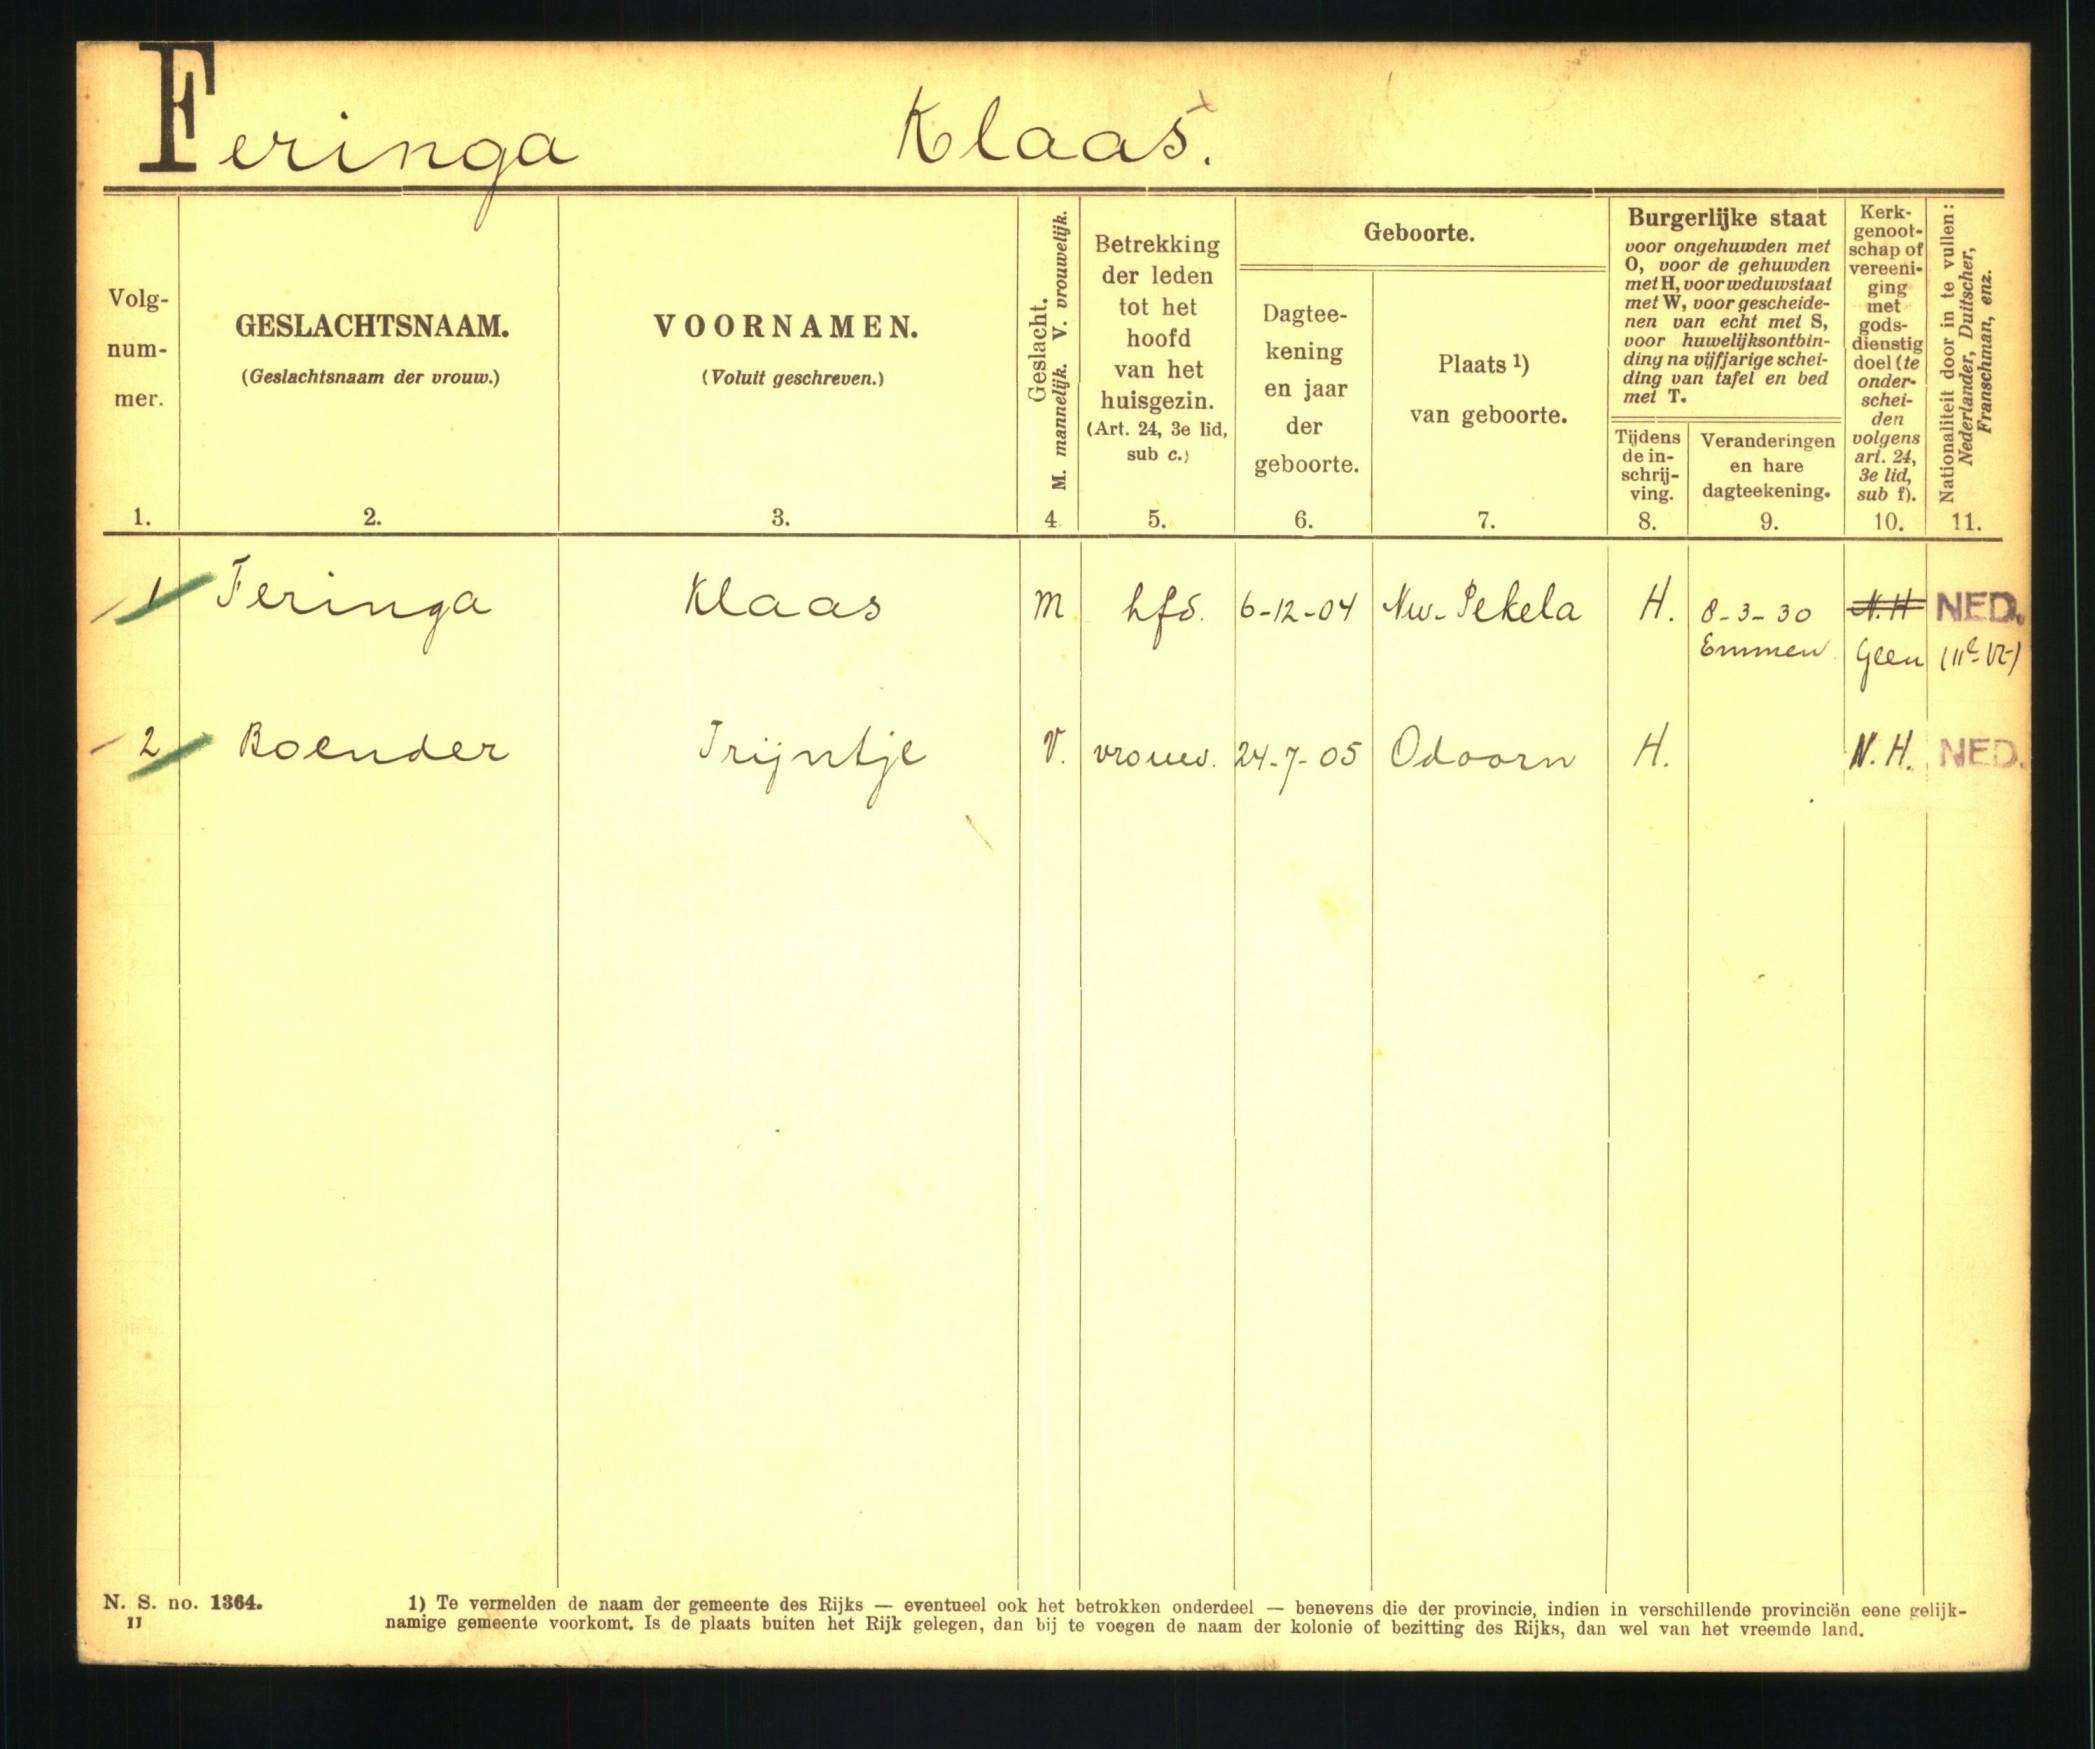 Feringa Klaas.
Volg-
num-
mer.
1.
GESLACHTSNAAM.
(Geslachtsnaam der vrouw.)
2.
VOORNAMEN.
(Voluit geschreven.)
3.
Geslacht.
M. mannelijk. V. vrouwelijk.
4
Betrekking
der leden
tot het
hoofd
van het
huisgezin.
(Art. 24, 3e lid,
sub c.)
5.
Geboorte.
Dagtee-
kening
en jaar
der
geboorte.
6.
Plaats 1)
van geboorte.
7.
Burgerlijke staat
voor ongehuwden met
O, voor de gehuwden
met H, voor weduwstaat
met W, voor gescheide-
nen van echt met S,
voor huwelijksontbin-
ding na vijfjarige schei-
ding van tafel en bed
met T.
Tijdens
de in-
schrij-
ving.
8.
Veranderingen
en hare
dagteekening.
9.
Kerk-
genoot-
schap of
vereeni-
ging
met
gods-
dienstig
doel (te
onder-
schei-
den
volgens
art. 24,
3e lid,
sub f).
10.
Nationaliteit door in te vullen:
Nederlander, Duitscher,
Franschman, enz.
11.
1 Feringa Klaas M hfd. 6-12-04 Nw-Pekela H. 8-3-30 N.H NED.
Emmen Geen
2 Roender Trijntje V. vrouw. 24-7-05 Odoorn H. N.H. NED.
N. S. no. 1364.
1) Te vermelden de naam der gemeente des Rijks — eventueel ook het betrokken onderdeel — benevens die der provincie, indien in verschillende provinciën eene gelijk-
namige gemeente voorkomt. Is de plaats buiten het Rijk gelegen, dan bij te voegen de naam der kolonie of bezitting des Rijks, dan wel van het vreemde land.